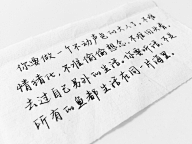 你要做一个不动声色的大人了。不准
情绪化，不准偷偷想念，不准回头看。
去过自己另外的生活。你要听话，不是
所有的鱼都生活在同一片海里。